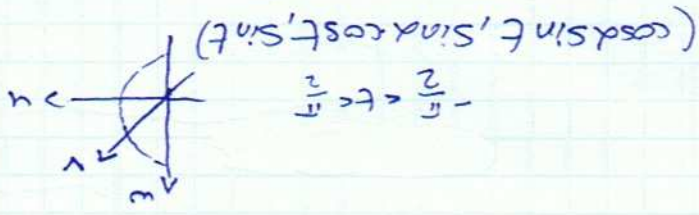 w
v
-π/2 < t < π/2
u
(cosα sin t, sinα cos t, sin t)